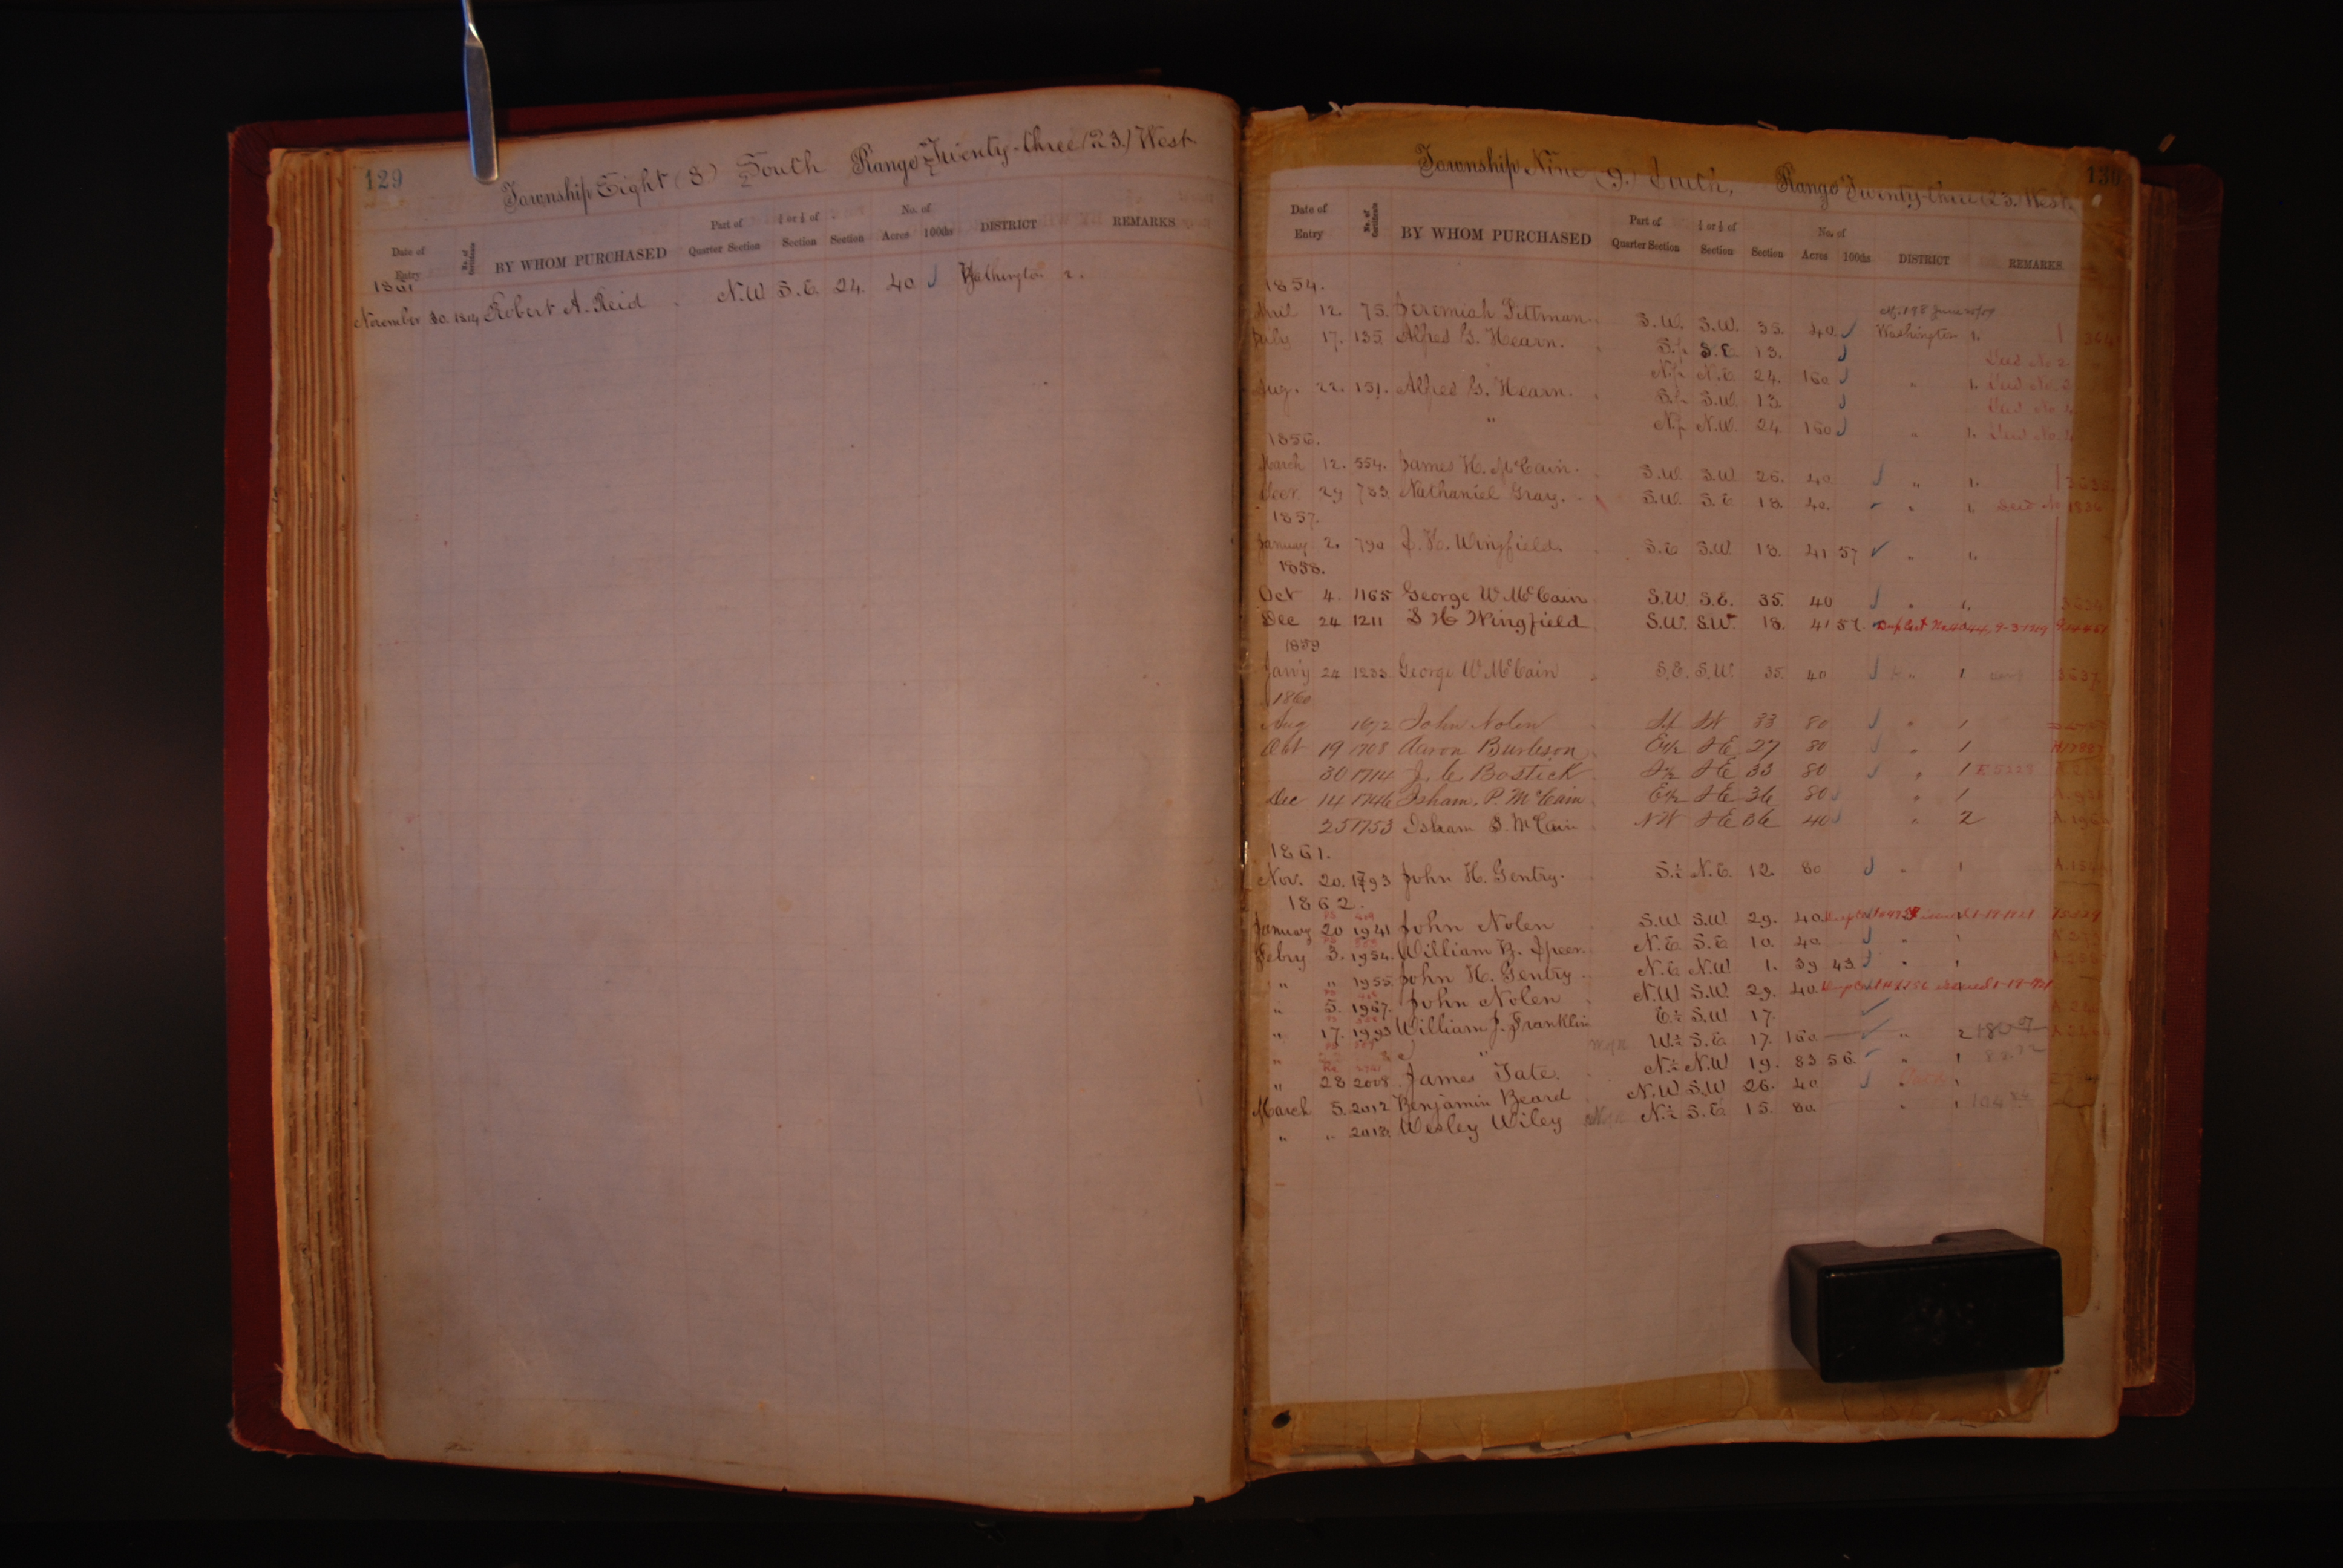 129
Township Eight (8) South Range Twenty-three (23) West
Date of Entry No. of Certificate BY WHOM PURCHASED Part of Quarter Section ½ or ¼ of Section Section No. of Acres 100ths DISTRICT REMARKS
1861
November 30. 1814 Robert A. Reid N.W. S.E. 24. 40 Washington 2.
130
Township Nine (9.) South, Range Twenty-three (23.) West
Date of Entry No. of Certificate BY WHOM PURCHASED Part of Quarter Section ½ or ¼ of Section Section No. of Acres 100ths DISTRICT REMARKS
1854.
April 12. 75. Jeremiah Pittman S.W. S.W. 35. 40. Washington 1.
July 17. 135. Alfred G. Hearn. S.½ S.E. 13. Deed No 2
N.½ N.E. 24. 160 " 1. Deed No.
Aug. 22. 151. Alfred G. Hearn. S.½ S.W. 13. Deed No.
" N.½ N.W. 24. 160 " 1. Deed No.
1856.
March 12. 554. James H. McCain. S.W. S.W. 26. 40 " 1.
Decr. 29 783. Nathaniel Gray. S.W. S.E. 18. 40. " 1. Deed No 1836
1857.
January 2. 790 J. H. Wingfield. S.E. S.W. 18. 41 57 " 1.
1858.
Oct 4. 1165 George W. McCain S.W. S.E. 35. 40 " 1.
Dec 24 1211 S H Wingfield S.W. S.W. 18. 41 57. 9-3-1919
1859
Jan'y 24 1233 George W McCain S.E. S.W. 35. 40 " 1
1860
Aug 1672 John Nolen S½ SW 33 80 " 1
Oct 19 1708 Aaron Burleson E½ SE 27 80 " 1
30 1714 J. C. Bostick S½ SE 33 80 " 1
Dec 14 1746 Isham. P. McCain E½ SE 36 80 " 1
25 1753 Isham S. McCain NW SE 36 40 " 2
1861.
Nov. 20. 1793 John H. Gentry. S.½ N.E. 12. 80 " 1
1862.
January 20 1941 John Nolen S.W. S.W. 29. 40 1-19-1921
Febry 3. 1954. William B. Speer. N.E. S.E. 10. 40 " 1
" " 1955. John H. Gentry N.E. N.W. 1. 39 43. " 1
" 5. 1967. John Nolen N.W. S.W. 29. 40. 1-19-1921
" 17. 1993 William J. Franklin E.½ S.W. 17.
" " W.½ S.E. 17. 160 " 2
" 28 2008. James Tate. N.½ N.W. 19. 83 56. " 1
March 5. 2012 Benjamin Beard N.W. S.W. 26. 40 1
" " 2013. Wesley Wiley N.½ S.E. 15. 80 " 1